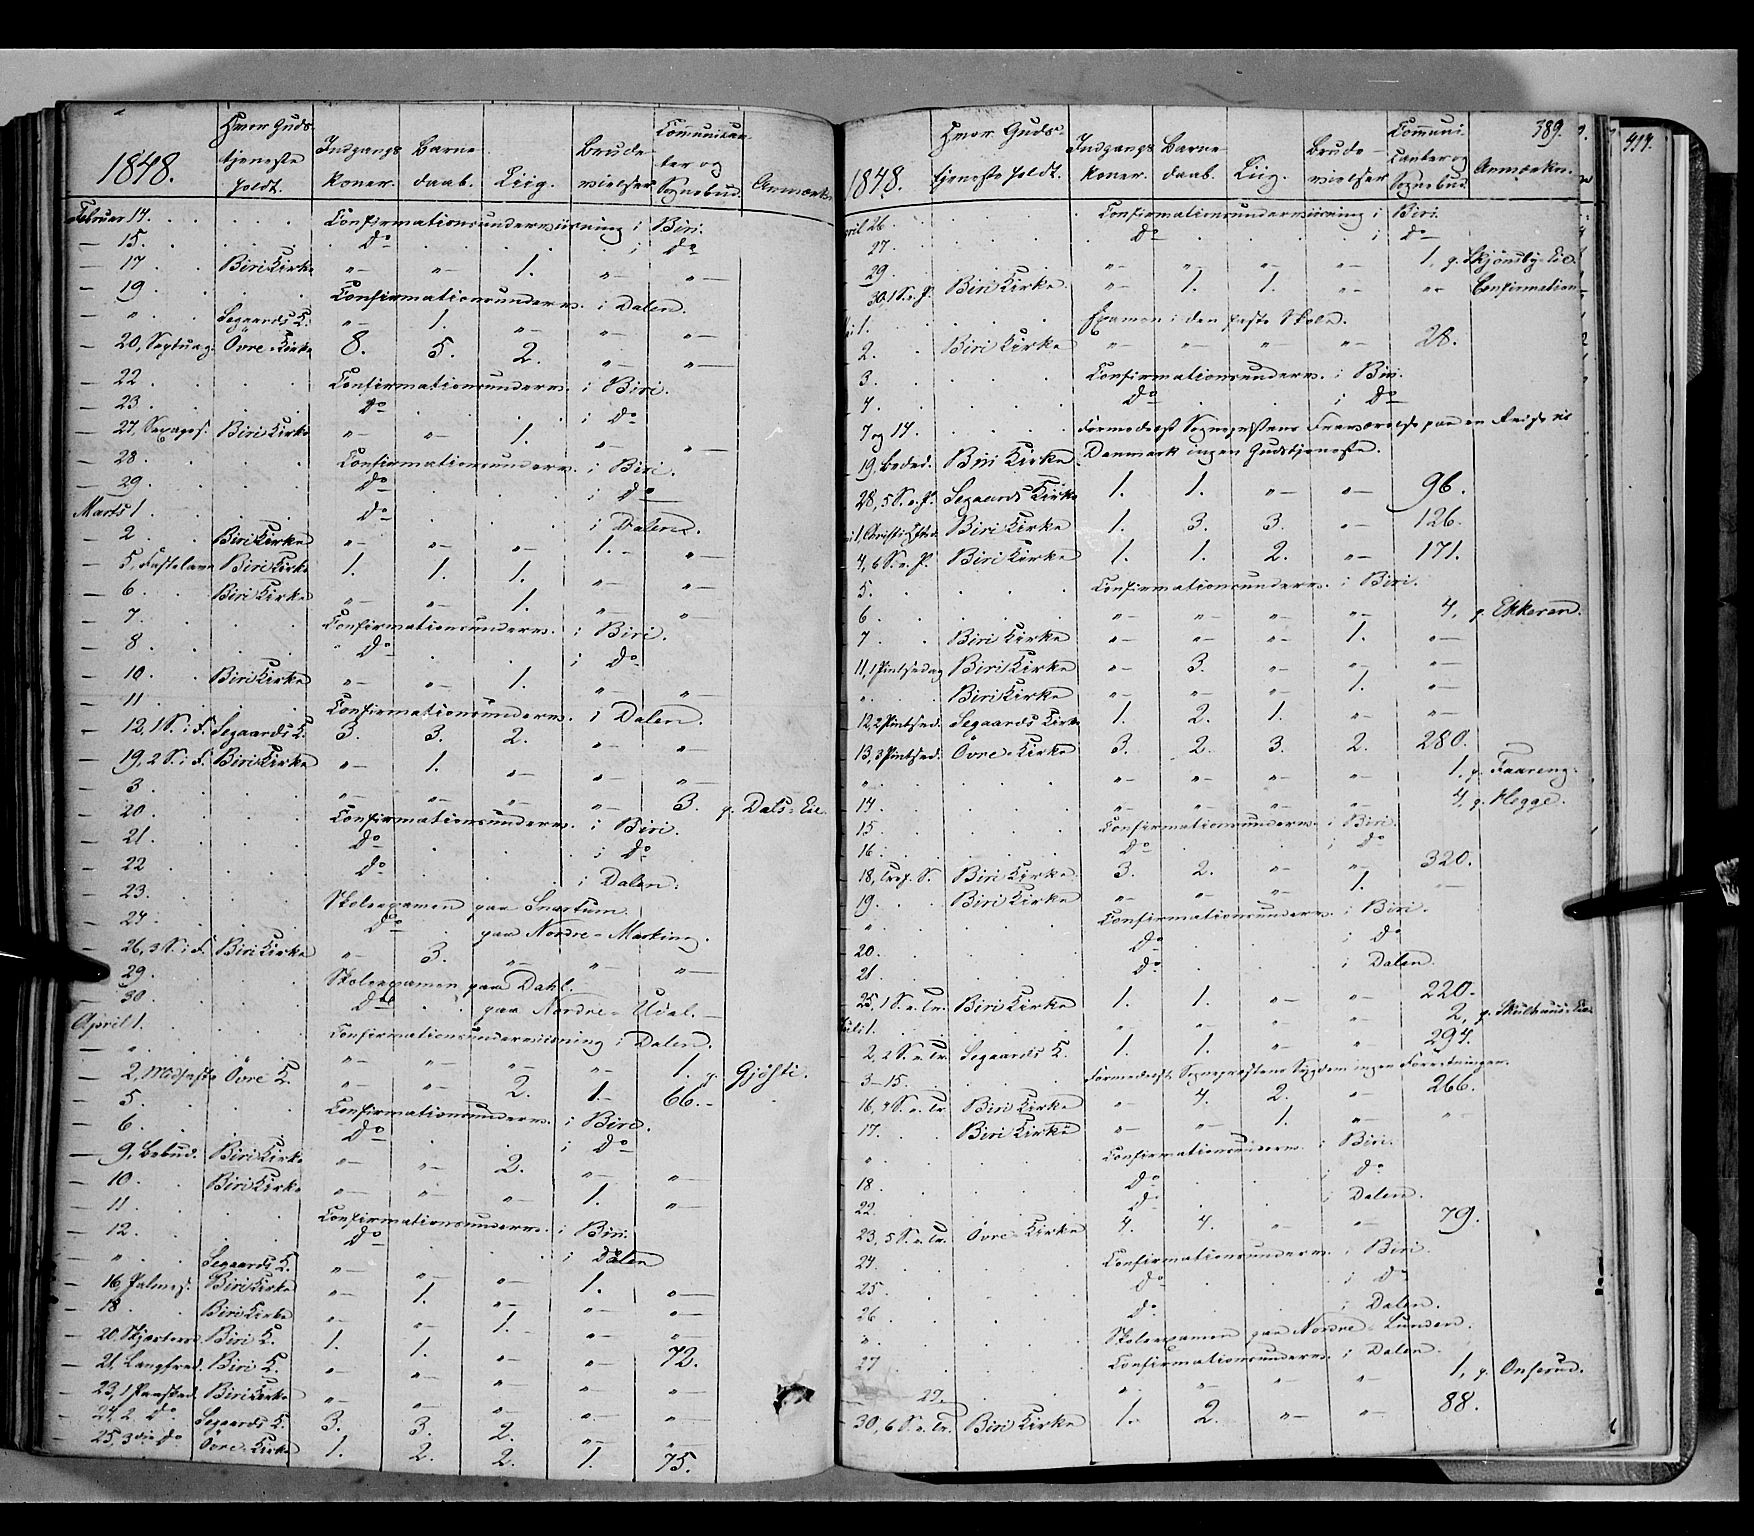 1848. Hvor Guds- tjeneste holdt. Indgangs koner. Barne daab. Liig. Brude vielser. Communikan ter og Sognebud. Anmærkn
Februar 14. Confirmationsunderviisning i Biri.
— 15. Do i Do
— 17 Biri Kirke "— "— 1. "— "—
— 19 Confirmationsunderv. i Dalen.
— " Segaards K. "— 1. "— "— "—
— 20, Septuag. Övre-Kirke 8. 5. 2. "— "—
— 22 Confirmationsunderv. i Biri.
— 23 Do i Do
— 27, Sexages. Biri Kirke "— "— 1. "— "—
— 28. Confirmationsunderv. i Biri.
— 29. Do i Do
Marts 1. Do i Dalen.
— 2. Biri Kirke "— "— "— 1. "—
— 5, Fastelavn Biri Kirke 1. 1. 1. "— "—
— 6. Biri Kirke "— "— 1. "— "—
— 7. Confirmationsunderv. i Biri.
— 8. Do i Do
— 10. Biri Kirke "— "— 1. "— "—
— 11. Confirmationsunderv. i Dalen.
— 12, 1 S. i F. Segaards K. 3. 3. 2. "— "—
— 19, 2 S. i F. Biri Kirke "— 1. "— "— "—
— 3. "— "— "— "— 3. p. Dals-Eie.
— 20. Confirmationsunderv. i Biri.
— 21. Do i Do
— 22 Do i Dalen.
— 23. Skoleexamen paa Snartum.
— 24 Do paa Nordre-Marking.
— 26, 3 S. i F. Biri Kirke "— 3. "— "— "—
— 29. Skoleexamen paa Dahl.
— 30 Do paa Nordre-
April 1. Confirmationsunderviisning i Dalen.
— " "— "— "— "— 1. p. Gjösti.
— 2, Midfaste Övre K. "— "— 2. 1. 66.
— 5. Confirmationsunderv. i Biri.
— 6. Do i Do
— 9. Bebud. Biri Kirke "— "— 2. "— "—
— 10. Biri Kirke "— "— "— 1. "—
— 11. Confirmationsunderv. i Biri.
— 12. Do i Dalen
— " Segaards K. "— "— "— 1. "—
— 16, Palmes. Biri Kirke "— 1. "— "— "—
— 18. Biri Kirke "— "— 1. "— "—
— 20, Skjærtorsd. Biri K. 1. 1. "— "— 72.
— 21, Langfred. Biri K. "— "— "— "— "
— 23, 1 Paasked. Biri Kirke "— "— "— "— "
— 24, 2 Do Segaards K. 3. 3. 2. "
— 25, 3die Do Övre-Kirke 1. 2. 2. 1. 75.
389.
414.
1848. Hvor Guds- tjeneste holdt. Indgangs koner. Barne daab. Liig. Brude- vielser Communi- canter og Sognebud. Anmærkn.
April 26. Confirmationsunderviisning i Biri.
27. Do i Do
29. "— "— "— "— 1, p. Skjönsby-Eie.
30. 1 S. e. P. Biri Kirke "— 1. 1. "— "— Confirmation
1. Examen i den faste Skole.
2. Biri Kirke "— "— "— "— 28.
3. Confirmationsunderv. i Biri.
4. Do i Do
7 og 14. Formedelst Sognepræstens Fraværelse paa en Reise til
Danmark ingen Gudstjeneste.
19, Beded. Biri Kirke 1. 1. "— "— 96.
28, 5 S. e. P. Segaards Kirke 1. 3. 3. "— 126.
1, Christi Hfd. Biri Kirke 1. 1. 2. "— 171.
4, 6 S. e. P. Biri Kirke
5. Confirmationsunderv. i Biri.
6. "— "— "— "— 4, p. Ekkeren.
7. Biri Kirke "— "— "— 1. "—
11, 1 Pintsedag Biri Kirke "— 3. "— "— "—
" Biri Kirke "— "— "— 1. "—
12, 2 Pintsed. Segaards Kirke 1. 2. 1. "— "—
13, 3 Pintsed. Övre-Kirke 3. 2. 3. 2. 280.
" "— "— "— "— 1, p. Faareng.
14. "— "— "— "— 4, p. Hegge.
15 Confirmationsunderv. i Biri.
16. Do i Do
18, Tref. S. Biri Kirke 3. 2. "— "— 320.
19. Biri Kirke "— "— "— 1. "—
" Confirmationsunderv. i Biri.
20. Do i Do
21 Do i Dalen.
25, 1 S. e. Tr. Biri Kirke 1. 1. "— "— 220.
Juli 1. " " " " 2, p. Skulhuus-Eie
2, 2 S. e. Tr. Segaards K. 1. 1. " " 294.
3-15. Formedelst Sognepræstens Sygdom ingen Forretninger.
16, 4 S. e. Tr. Biri Kirke "— 4. 2. "— 266.
17. Biri Kirke "— "— 1. "— "—
" Confirmationsunderv. i Biri.
18 Do i Do
22. Do i Dalen.
23, 5 S. e. Tr. Övre-Kirke 4. 4. "— "— 79.
24. Confirmationsunderv. i Biri.
25. Do i Do
26. Do i Dalen.
" Skoleexamen paa Nordre-Lunden.
27 Confirmationsunderv. i Dalen.
27. "— "— "— "— 1, p. Onsrud.
30, 6 S. e. Tr. Biri Kirke 1. 2. "— "— 88.